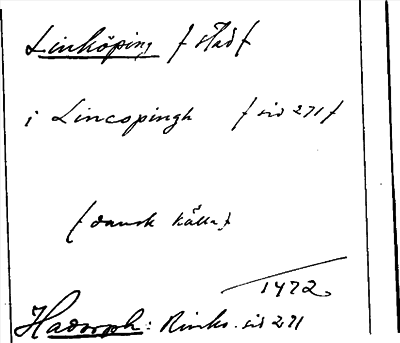 Linköping / stad /
i Lincopingh / sid 271 /
( dansk källa )
1472.
Hadorph: Rimkr. sid 271